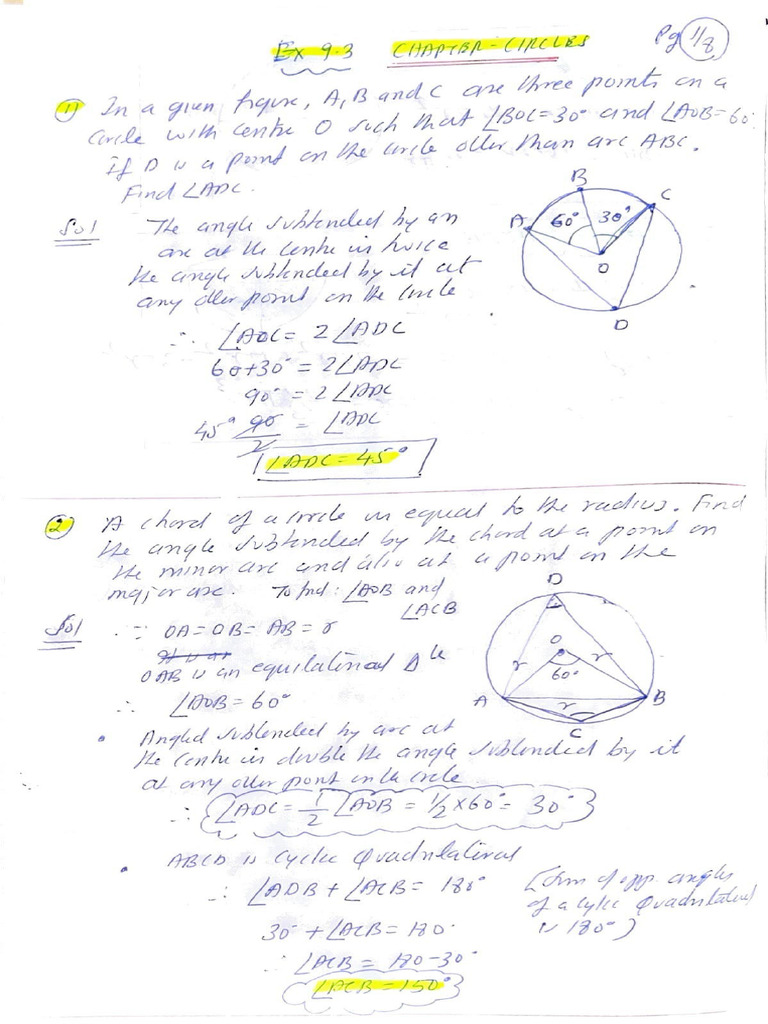 Ex 9.3 CHAPTER-CIRCLES Pg 1/8
1) In a given figure, A, B and C are three points on a
circle with centre O such that ∠BOC=30° and ∠AOB=60°.
If D is a point on the circle other than arc ABC.
Find ∠ADC.
Sol The angle subtended by an
arc at the centre is twice
the angle subtended by it at
any other point on the circle
∴ ∠AOC= 2 ∠ADC
60+30° = 2∠ADC
90° = 2 ∠ADC
45° 90/2 = ∠ADC
∠ADC = 45°
A B C 60° 30° O D
2 A chord of a circle is equal to the radius. Find
the angle subtended by the chord at a point on
the minor arc and also at a point on the
major arc. To find: ∠AOB and
∠ACB
Sol ∵ OA = OB = AB = r
OAB is an equilateral Δle
∴ ∠AOB = 60°
D O r r 60° A r B C
• Angled subtended by arc at
the centre is double the angle subtended by it
at any other point on the circle
∴ ∠ADC = 1/2 ∠AOB = 1/2 X 60° = 30°
• ABCD is cyclic Quadrilateral
∴ ∠ADB + ∠ACB = 180° [Sum of opp. angles
of a cyclic Quadrilateral
is 180°)
30° + ∠ACB = 180°
∴ ∠ACB = 180-30°
∠ACB = 150°